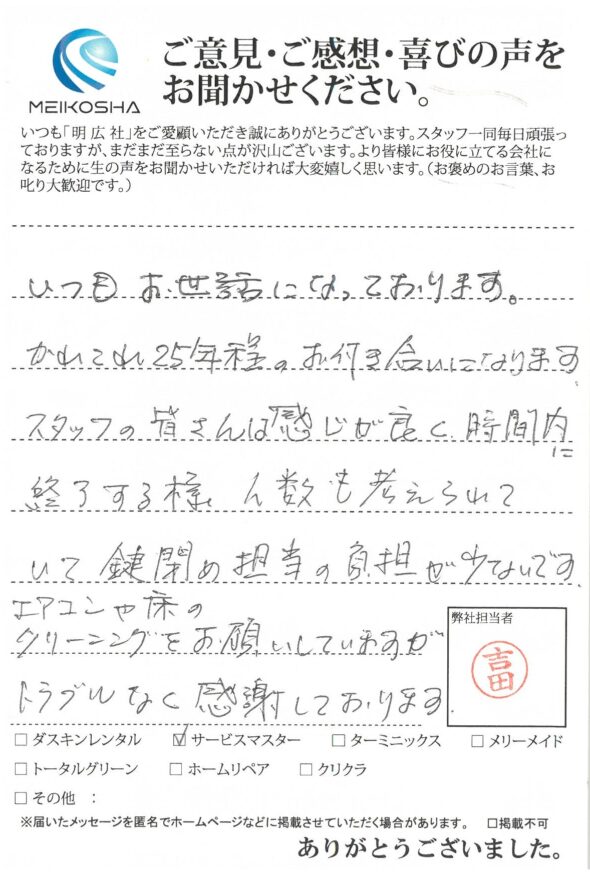 MEIKOSHA
ご意見・ご感想・喜びの声を
お聞かせください。
いつも「明広社」をご愛顧いただき誠にありがとうございます。スタッフ一同毎日頑張っ
ておりますが、まだまだ至らない点が沢山ございます。より皆様にお役に立てる会社に
なるために生の声をお聞かせいただければ大変嬉しく思います。（お褒めのお言葉、お
叱り大歓迎です。）
いつもお世話になっております。
かれこれ25年程のお付き合いになります
スタッフの皆さんは感じが良く、時間内に
終了する様、人数も考えられて
いて鍵閉め担当の負担が少ないです。
エアコンや床の
クリーニングをお願いしていますが
トラブルなく感謝しております。
弊社担当者
吉田
□ダスキンレンタル ☑サービスマスター □ターミニックス □メリーメイド
□トータルグリーン □ホームリペア □クリクラ
□その他 ：
※届いたメッセージを匿名でホームページなどに掲載させていただく場合があります。 □掲載不可
ありがとうございました。